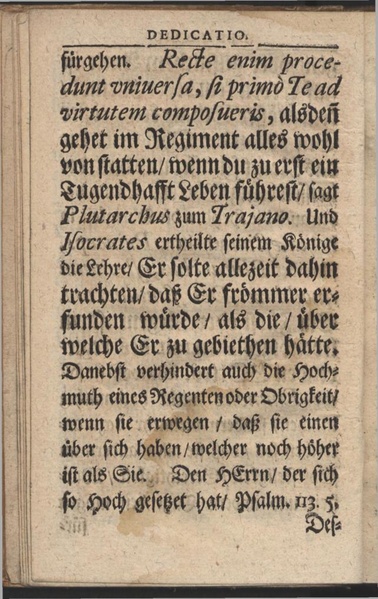 DEDICATIO.
fürgehen. Recte enim proce-
dunt vniuersa, si primò Te ad
virtutem composueris, alsdeñ
gehet im Regiment alles wohl
von statten/ wenn du zu erst ein
Tugendhafft Leben führest/ sagt
Plutarchus zum Trajano. Und
Isocrates ertheilte seinem Könige
die Lehre/ Er solte allezeit dahin
trachten/ daß Er frömmer er-
funden würde/ als die/ über
welche Er zu gebiethen hätte.
Danebst verhindert auch die Hoch-
muth eines Regenten oder Obrigkeit/
wenn sie erwegen/ daß sie einen
über sich haben/ welcher noch höher
ist als Sie. Den HErrn/ der sich
so Hoch gesetzet hat/ Psalm. 113. 5.
Des-